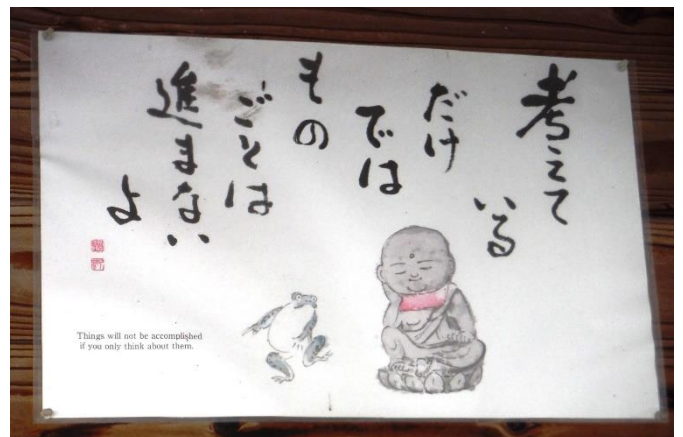 考えて
いる
だけ
では
もの
ごとは
進まない
よ
Things will not be accomplished
if you only think about them.